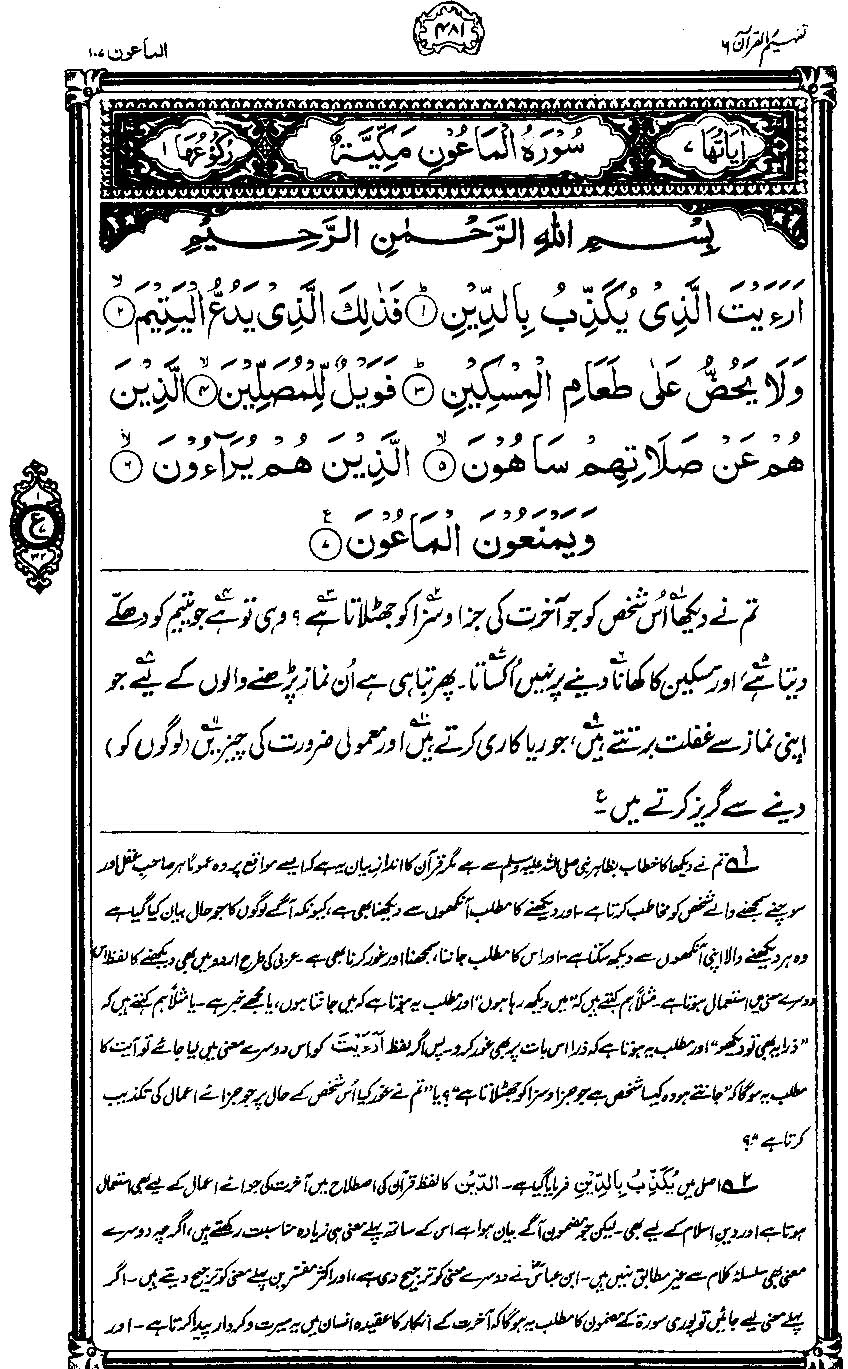 تفہیم القرآن ۶
۴۸۱
الماعون ۱۰۷
اٰیَاتُهَا ۷
سُوْرَةُ الْمَاعُوْنِ مَكِّیَّةٌ
رُكُوْعُهَا ۱
بِسْمِ اللهِ الرَّحْمٰنِ الرَّحِیْمِ
اَرَءَیْتَ الَّذِیْ یُكَذِّبُ بِالدِّیْنِ ۱ؕ فَذٰلِكَ الَّذِیْ یَدُعُّ الْیَتِیْمَ ۲ۙ
وَلَا یَحُضُّ عَلٰی طَعَامِ الْمِسْكِیْنِ ۳ؕ فَوَیْلٌ لِّلْمُصَلِّیْنَ ۴ۙ الَّذِیْنَ
هُمْ عَنْ صَلَاتِهِمْ سَاهُوْنَ ۵ۙ الَّذِیْنَ هُمْ یُرَآءُوْنَ ۶ۙ
وَیَمْنَعُوْنَ الْمَاعُوْنَ ۷ع
۱
ع
۷
۳۲
تم نے دیکھا۱ اُس شخص کو جو آخرت کی جزا و سزا۲ کو جھٹلاتا ہے۳؟ وہی تو ہے۴ جو یتیم کو دھکے
دیتا ہے۵، اور مسکین کا کھانا۶ دینے پر نہیں اُکساتا۷۔ پھر تباہی ہے اُن نماز پڑھنے والوں کے لیے۸ جو
اپنی نماز سے غفلت برتتے ہیں۹، جو ریاکاری کرتے ہیں۱۰، اور معمولی ضرورت کی چیزیں۱۱ (لوگوں کو)
دینے سے گریز کرتے ہیں۔ ع
۱؎ تم نے دیکھا کا خطاب بظاہر نبی صلی اللہ علیہ وسلم سے ہے مگر قرآن کا اندازِ بیان یہ ہے کہ ایسے مواقع پر وہ عموماً ہر صاحبِ عقل اور
سوچنے سمجھنے والے شخص کو مخاطب کرتا ہے۔ اور دیکھنے کا مطلب آنکھوں سے دیکھنا بھی ہے، کیونکہ آگے لوگوں کا جو حال بیان کیا گیا ہے
وہ ہر دیکھنے والا اپنی آنکھوں سے دیکھ سکتا ہے۔ اور اس کا مطلب جاننا، سمجھنا اور غور کرنا بھی ہے۔ عربی کی طرح اردو میں بھی دیکھنے کا لفظ اس
دوسرے معنی میں استعمال ہوتا ہے۔ مثلاً ہم کہتے ہیں کہ "میں دیکھ رہا ہوں" اور مطلب یہ ہوتا ہے کہ میں جانتا ہوں، یا مجھے خبر ہے۔ یا مثلاً ہم کہتے ہیں کہ
"ذرا یہ بھی تو دیکھو" اور مطلب یہ ہوتا ہے کہ ذرا اس بات پر بھی غور کرو۔ پس اگر لفظ اَرَءَیْتَ کو اس دوسرے معنی میں لیا جائے تو آیت کا
مطلب یہ ہوگا کہ "جانتے ہو وہ کیسا شخص ہے جو جزا و سزا کو جھٹلاتا ہے"؟ یا "تم نے غور کیا اُس شخص کے حال پر جو جزائے اعمال کی تکذیب
کرتا ہے"؟
۲؎ اصل میں یُكَذِّبُ بِالدِّیْنِ فرمایا گیا ہے۔ الدِّیْن کا لفظ قرآن کی اصطلاح میں آخرت کی جزائے اعمال کے لیے بھی استعمال
ہوتا ہے اور دینِ اسلام کے لیے بھی۔ لیکن جو مضمون آگے بیان ہوا ہے اس کے ساتھ پہلے معنی ہی زیادہ مناسبت رکھتے ہیں، اگرچہ دوسرے
معنی بھی سلسلۂ کلام سے غیر مطابق نہیں ہیں۔ ابن عباسؓ نے دوسرے معنی کو ترجیح دی ہے، اور اکثر مفسرین پہلے معنی کو ترجیح دیتے ہیں۔ اگر
پہلے معنی لیے جائیں تو پوری سورۃ کے مضمون کا مطلب یہ ہوگا کہ آخرت کے انکار کا عقیدہ انسان میں یہ سیرت و کردار پیدا کرتا ہے۔ اور